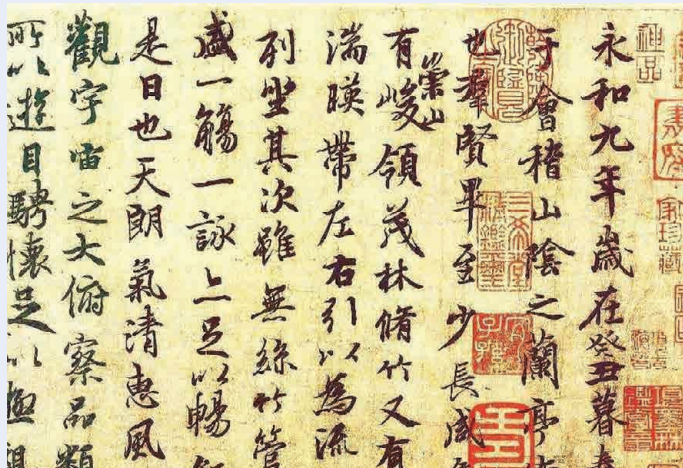 神品
永和九年歲在癸丑暮春
于會稽山陰之蘭亭
也羣賢畢至少長咸
有崇山峻領茂林脩竹又有
湍暎帶左右引以為流
列坐其次雖無絲竹管
盛一觴一詠亦足以暢
是日也天朗氣清惠風
觀宇宙之大俯察品類
所以遊目騁懷足以極視
三希堂精鑑璽